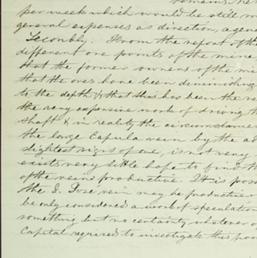 per week which would be still
general expenses as direction, agen
Secondly. From the report of the
different ore points of the mine
that the former owners of the mi
that the ores have been diminishing
to the depth & that this has been the re
the very expensive work of driving th
shaft & in reality the circumstance
the large Capula vein by the ad
slightest signs of ore, is not very
exists very little hope to find th
of the vein productive. It is poss
the S. José vein may be productive
be only considered a work of speculation
something, but no certainty whatever of
Capital required to investigate this poin